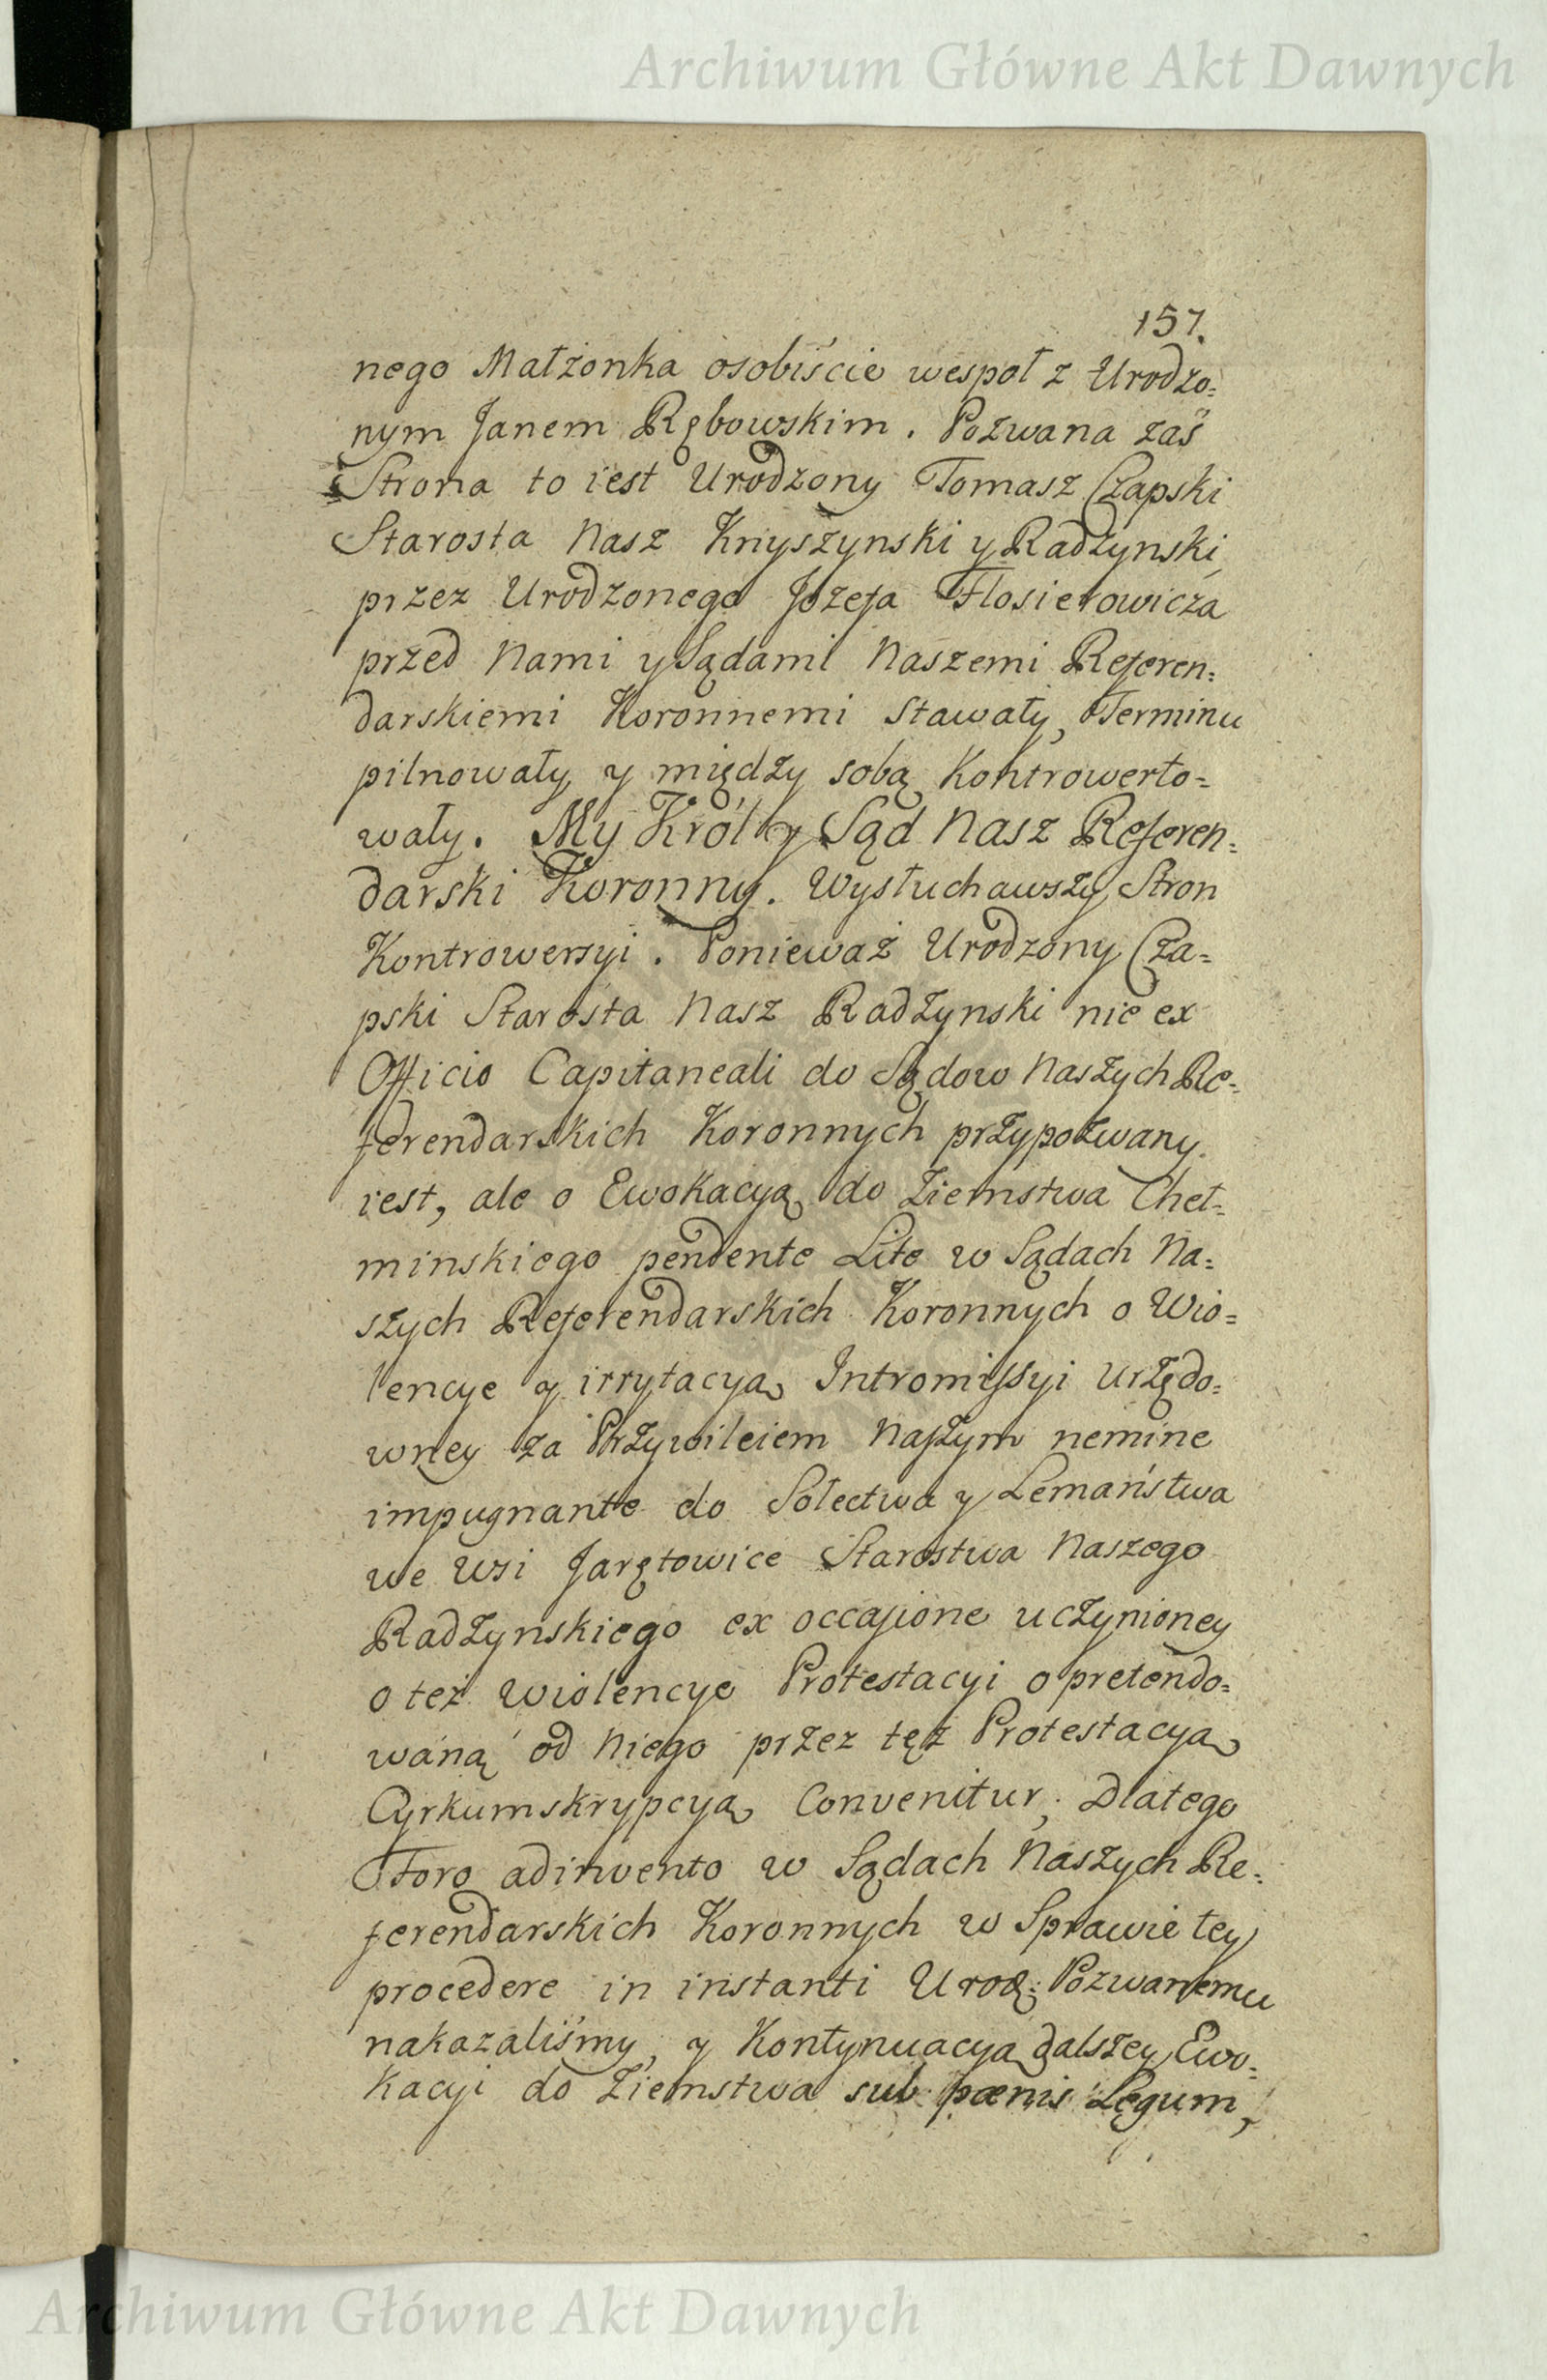 Archiwum Główne Akt Dawnych
157.
nego Małżonka osobiście wespoł z Urodzo=
nym Janem Rębowskim. Pozwana zaś
Strona to iest Urodzony Tomasz Czapski
Starosta Nasz Knyszynski y Radzynski
przez Urodzonego Jozefa Flosierowicza
przed Nami y Sądami Naszemi Referen=
darskiemi Koronnemi stawały, Terminu
pilnowały y między sobą Kontrowerto=
wały. My Król y Sąd Nasz Referen=
darski Koronny. Wysłuchawszy Stron
Kontrowersyi. Ponieważ Urodzony Cza=
pski Starosta Nasz Radzynski nie ex
Officio Capitaneali do Sądow Naszych Re=
ferendarskich Koronnych przypozwany
iest, ale o Ewokacyą do Ziemstwa Cheł=
minskiego pendente Lite w Sądach Na=
szych Referendarskich Koronnych o Wio=
lencye y irrytacyą Intromissyi Urzędo=
wney za Przywileiem Naszym nemine
impugnante do Sołectwa y Lemaństwa
we Wsi Jarętowice Starostwa Naszego
Radzynskiego ex occasione uczynioney
o też wiolencye Protestacyi o pretendo=
waną od Niego przez tęż Protestacyą
Cyrkumskrypcyą Convenitur, Dlatego
Foro adinvento w Sądach Naszych Re=
ferendarskich Koronnych w Sprawie tey
procedere in instanti Urodz: Pozwanemu
nakazaliśmy, y Kontynuacyą dalszey Ewo=
kacyi do Ziemstwa sub pœnis Legum,
Archiwum Główne Akt Dawnych